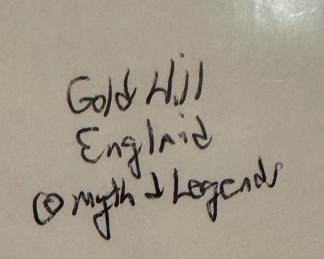 Gold Hill
England
@ myth & Legends